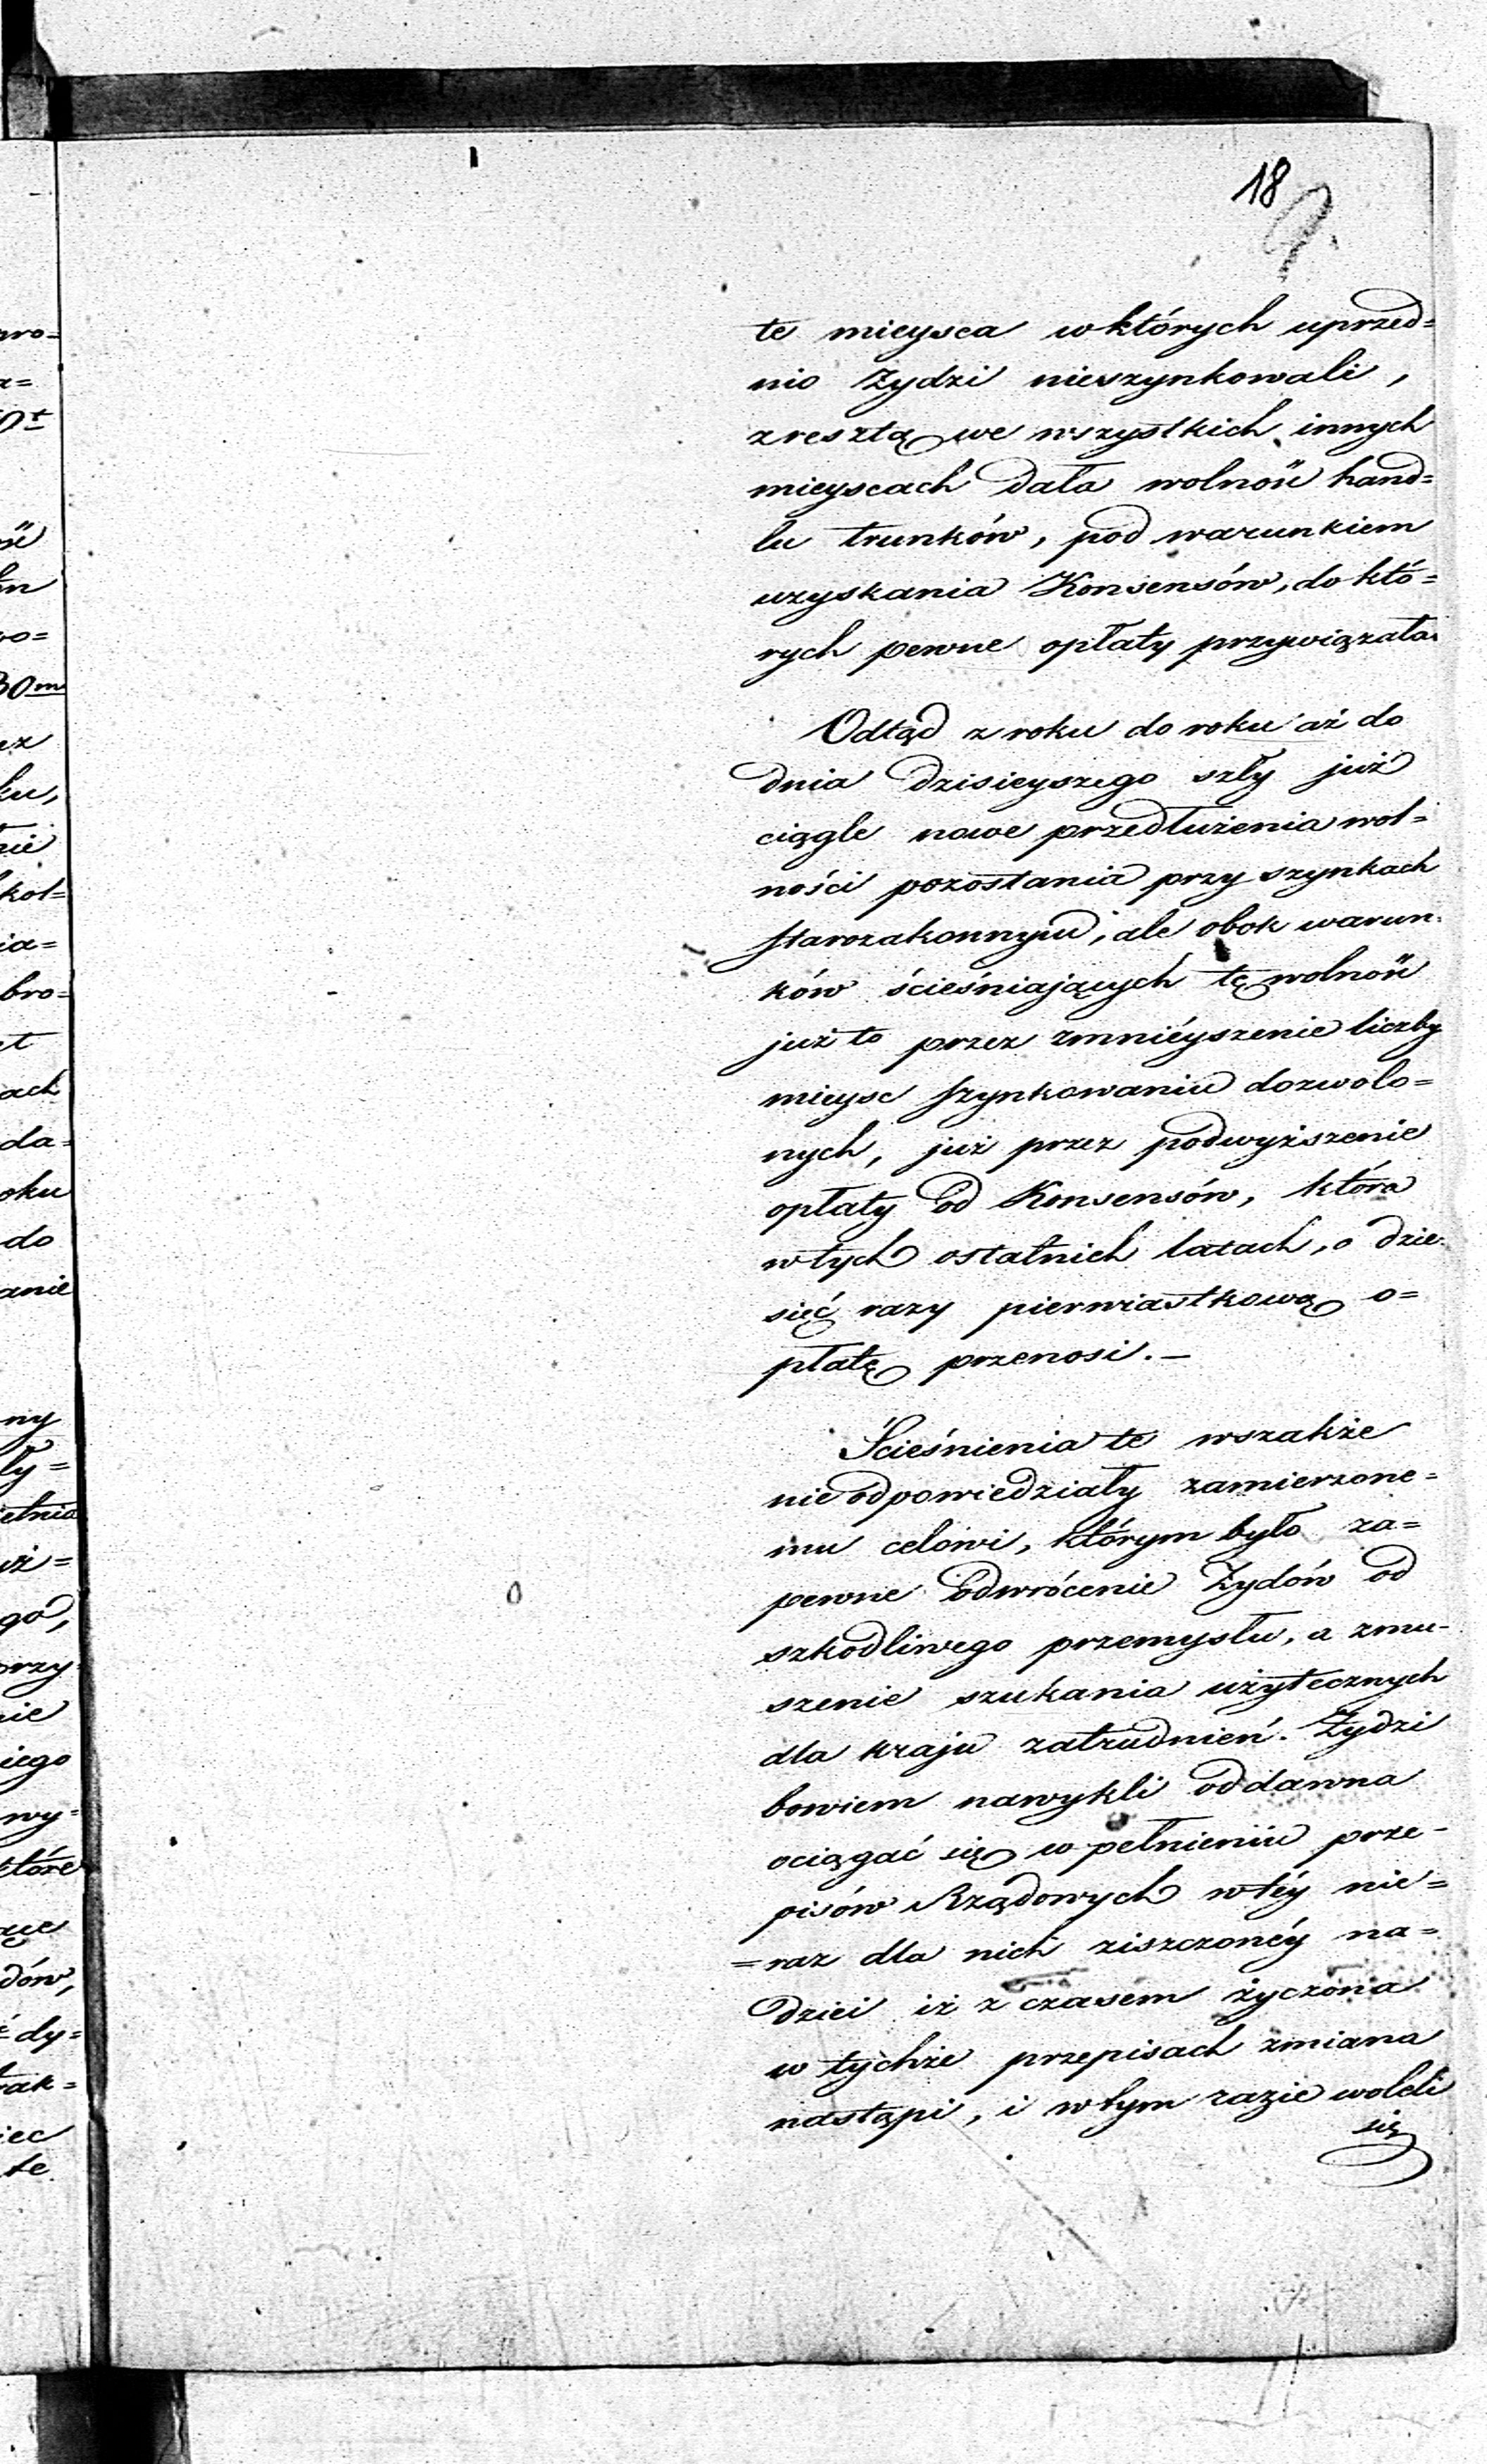 18
te mieysca w których uprzed=
nio Żydzi nieszynkowali,
zresztą we wszystkich innych
mieyscach dała wolność hand=
lu trunków, pod warunkiem
uzyskania Konsensów, do któ=
rych pewne opłaty przywiązała.
Odtąd z roku do roku aż do
dnia dzisieyszego szły już
ciągle nowe przedłużenia wol=
ności pozostania przy szynkach
starozakonnym, ale obok warun=
ków ścieśniających tę wolność
już to przez zmniéyszenie liczby
mieysc szynkowaniu dozwolo=
nych, już przez podwyższenie
opłaty od Konsensów, która
w tych ostatnich latach, o dzie=
sięć razy pierwiastkową o=
płatę przenosi. —
Ścieśnienia te wszakże
nie odpowiedziały zamierzone=
mu celowi, którym było za=
pewne odwrócenie Żydów od
szkodliwego przemysłu, a zmu=
szenie szukania użytecznych
dla kraju zatrudnień. Żydzi
bowiem nawykli oddawna
ociągać się w pełnieniu prze=
pisów Rządowych w téy nie=
=raz dla nich ziszczonéy na=
dziei iż z czasem życzona
w tychże przepisach zmiana
nastąpi, i w tym razie woleli
się
pro=
0t
ść
30m
ku,
kol=
ia=
bro=
ach
da=
oku
do
anie
ny
ły=
etnia
go,
przy
nie
iego
wy=
które
dów,
dy=
tak=
iec
te